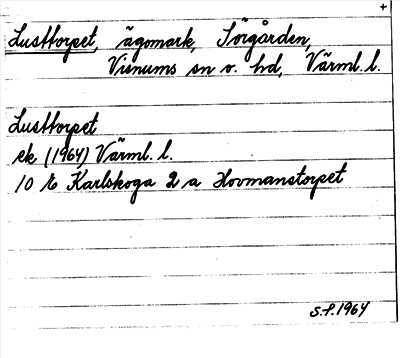 +
Lusttorpet, ägomark, Sörgården,
Visnums sn o. hd, Värml. l.
Lusttorpet
ek (1964) Värml. l.
10 E Karlskoga 2 a Hovmanstorpet
S.P. 1964